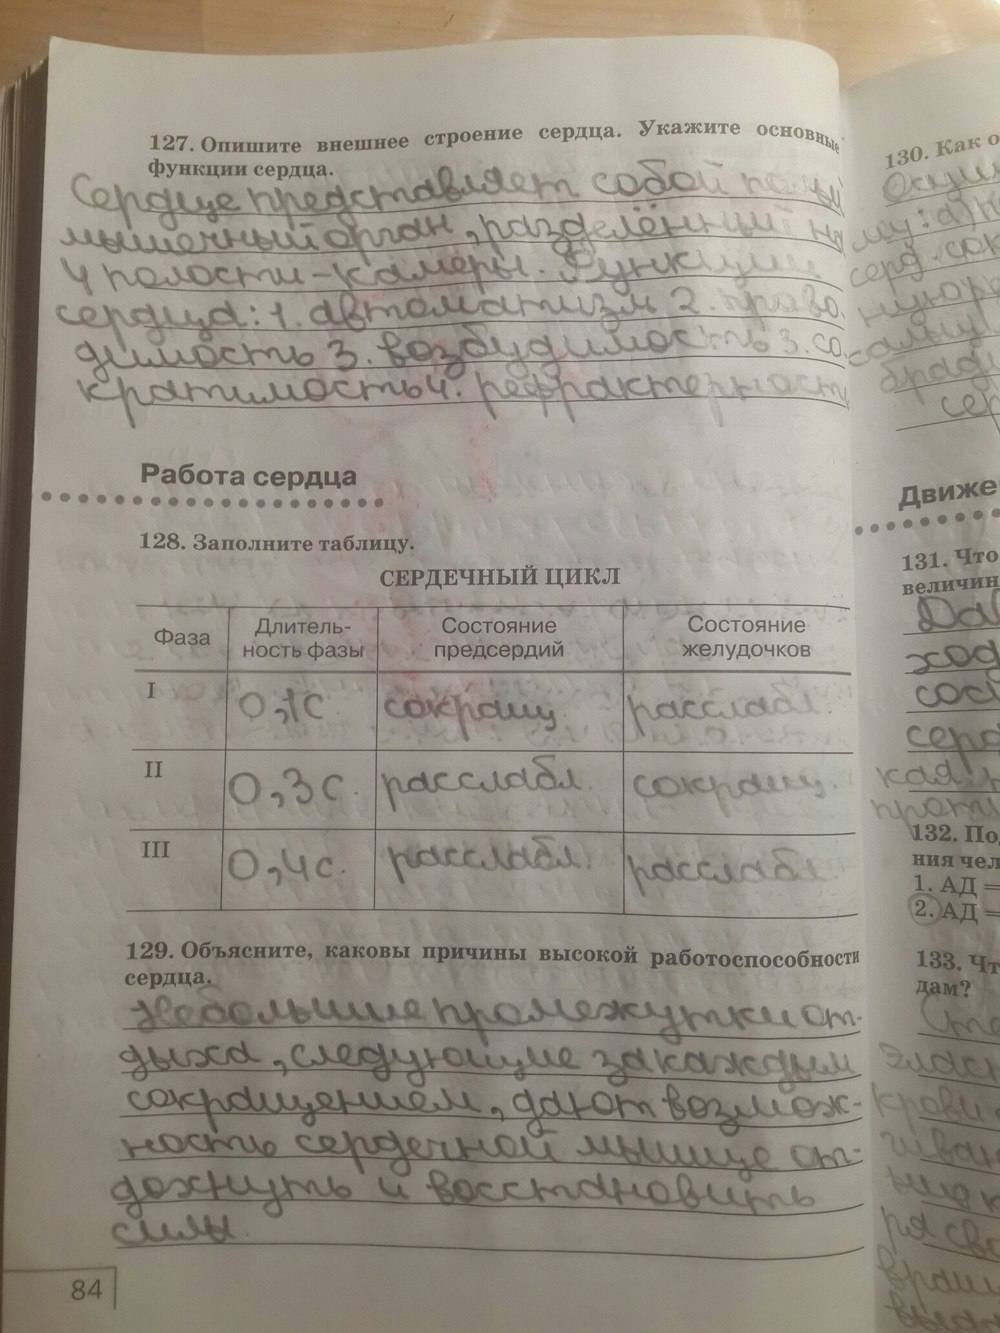 127. Опишите внешнее строение сердца. Укажите основные
функции сердца.
Сердце представляет собой полый
мышечный орган, разделённый на
4 полости-камеры. Функции
сердца: 1. автоматизм 2. прово-
димость 3. возбудимость 3. со-
кратимость 4. рефрактерность
Работа сердца
128. Заполните таблицу.
СЕРДЕЧНЫЙ ЦИКЛ
Фаза Длитель- Состояние Состояние
ность фазы предсердий желудочков
I 0,1с сокращ. расслабл.
II 0,3с. расслабл. сокращ.
III 0,4с. расслабл. расслабл.
129. Объясните, каковы причины высокой работоспособности
сердца.
Небольшие промежутки от-
дыха, следующие за каждым
сокращением, дают возмож-
ность сердечной мышце от-
дохнуть и восстановить
силы
84
130. Как о
му: а)
серд. сок
сер
Движе
131. Что
величин
Дав
ход
сос
серд
кая:
132. По
ния чел
1. АД =
2. АД =
133. Чт
дам?
элас
крови